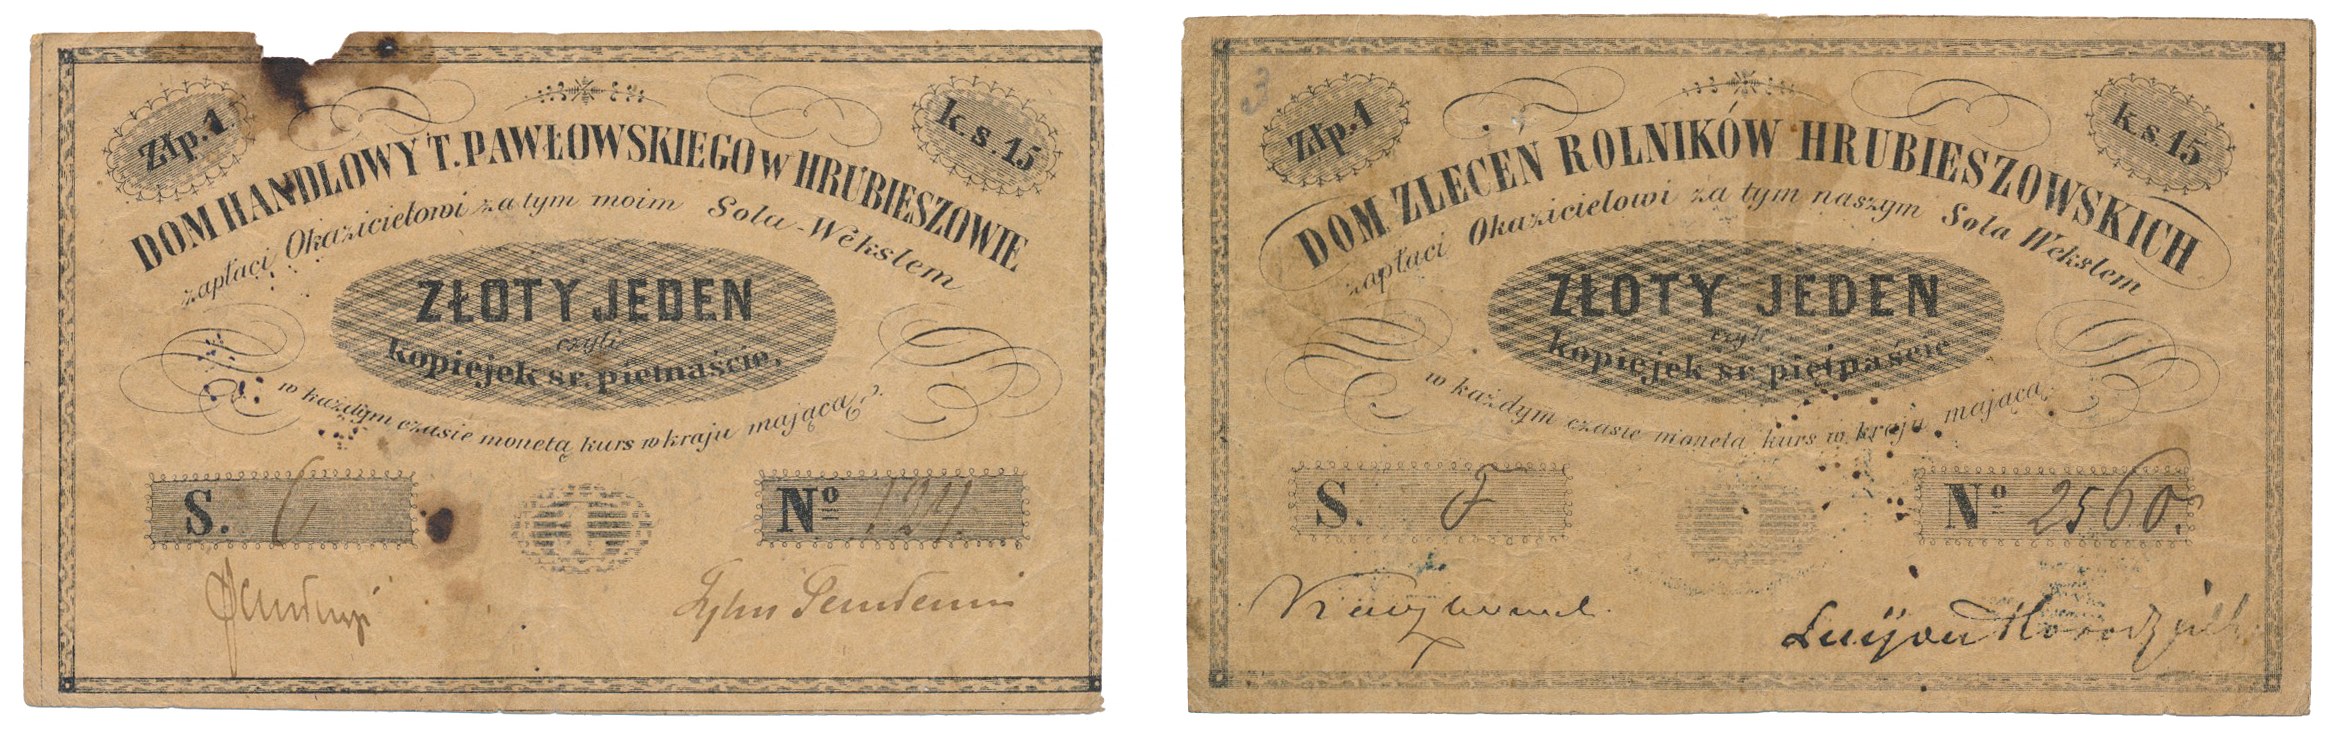 Złp.1
k.s.15
DOM HANDLOWY T. PAWŁOWSKIEGO w HRUBIESZOWIE
zapłaci Okazicielowi za tym moim Sola-Wekslem
ZŁOTY JEDEN
czyli
kopiejek sr. piętnaście,
w każdym czasie monetą kurs w kraju mającą
S. 6
1
Nº 1324.
Złp.1
k.s.15
DOM ZLECEŃ ROLNIKÓW HRUBIESZOWSKICH
zapłaci Okazicielowi za tym naszym Sola Wekslem
ZŁOTY JEDEN
czyli
kopiejek sr. piętnaście
w każdym czasie monetą kurs w kraju mającą
S.
1
Nº 2560.